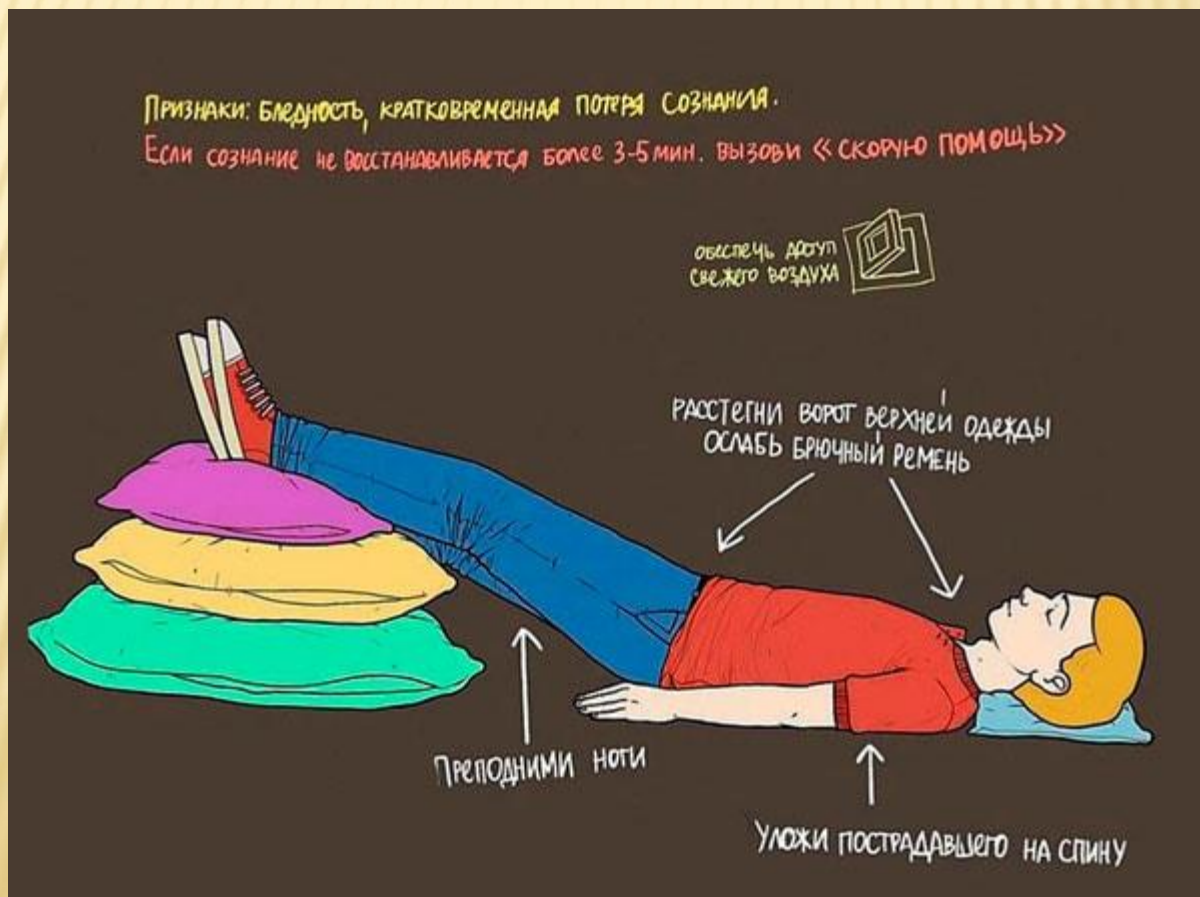 Признаки: бледность, кратковременная потеря сознания.
Если сознание не восстанавливается более 3-5 мин. вызови «скорую помощь»
обеспечь доступ
свежего воздуха
расстегни ворот верхней одежды
ослабь брючный ремень
Преподними ноги
Уложи пострадавшего на спину